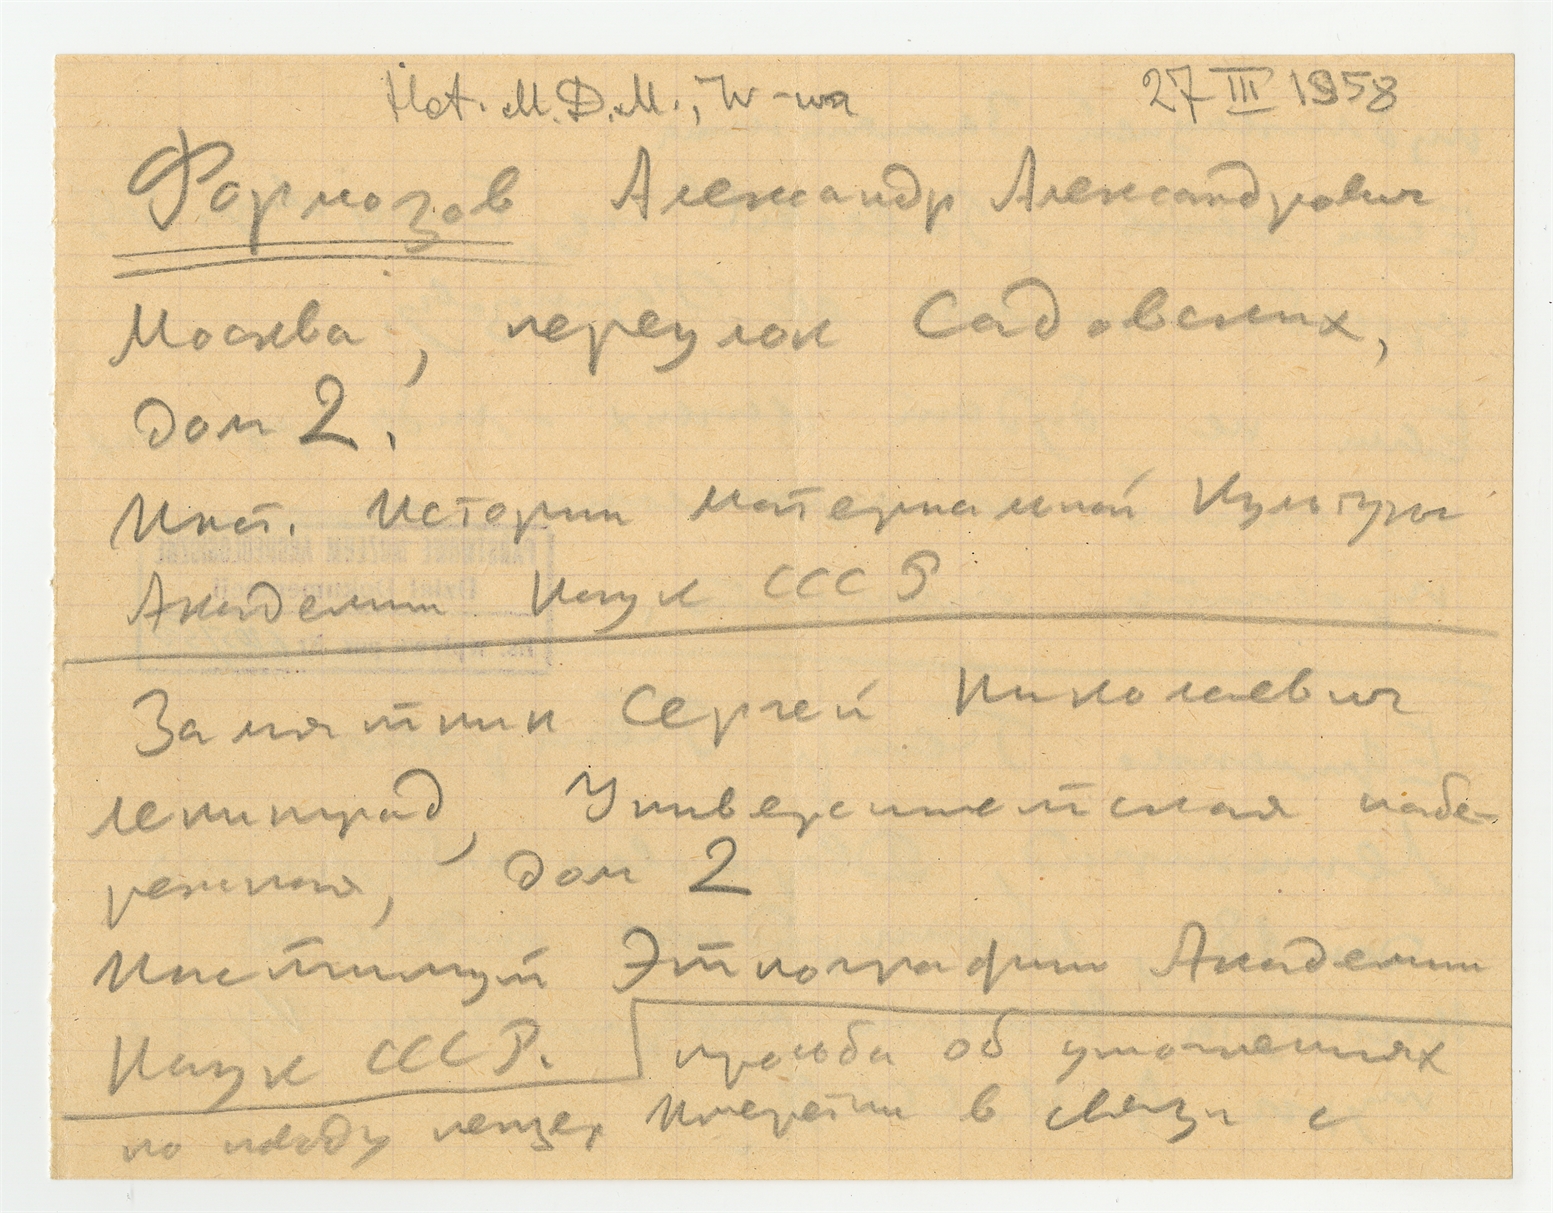 Hot. M.D.M., W-wa 27 III 1958
Формозов Александр Александрович
Москва, переулок Садовских,
дом 2.
Инст. Истории Материальной Культуры
Академии Наук СССР
Замятнин Сергей Николаевич
Ленинград, Университетская набе-
режная, дом 2
Институт Этнографии Академии
Наук СССР. просьба об уточнениях
по поводу пещер Имеретии в связи с